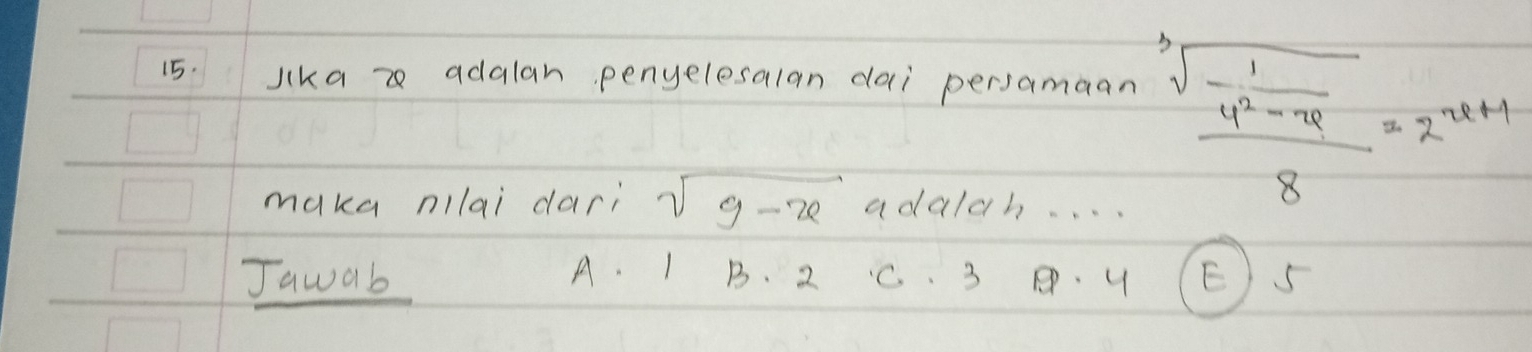 15. Jika x adalah penyelesaian dai persamaan ∛(1/(4² - x))/8 = 2^(x+1)
maka nilai dari √(9-x) adalah ....
Jawab A. 1 B. 2 C. 3 D. 4 E 5